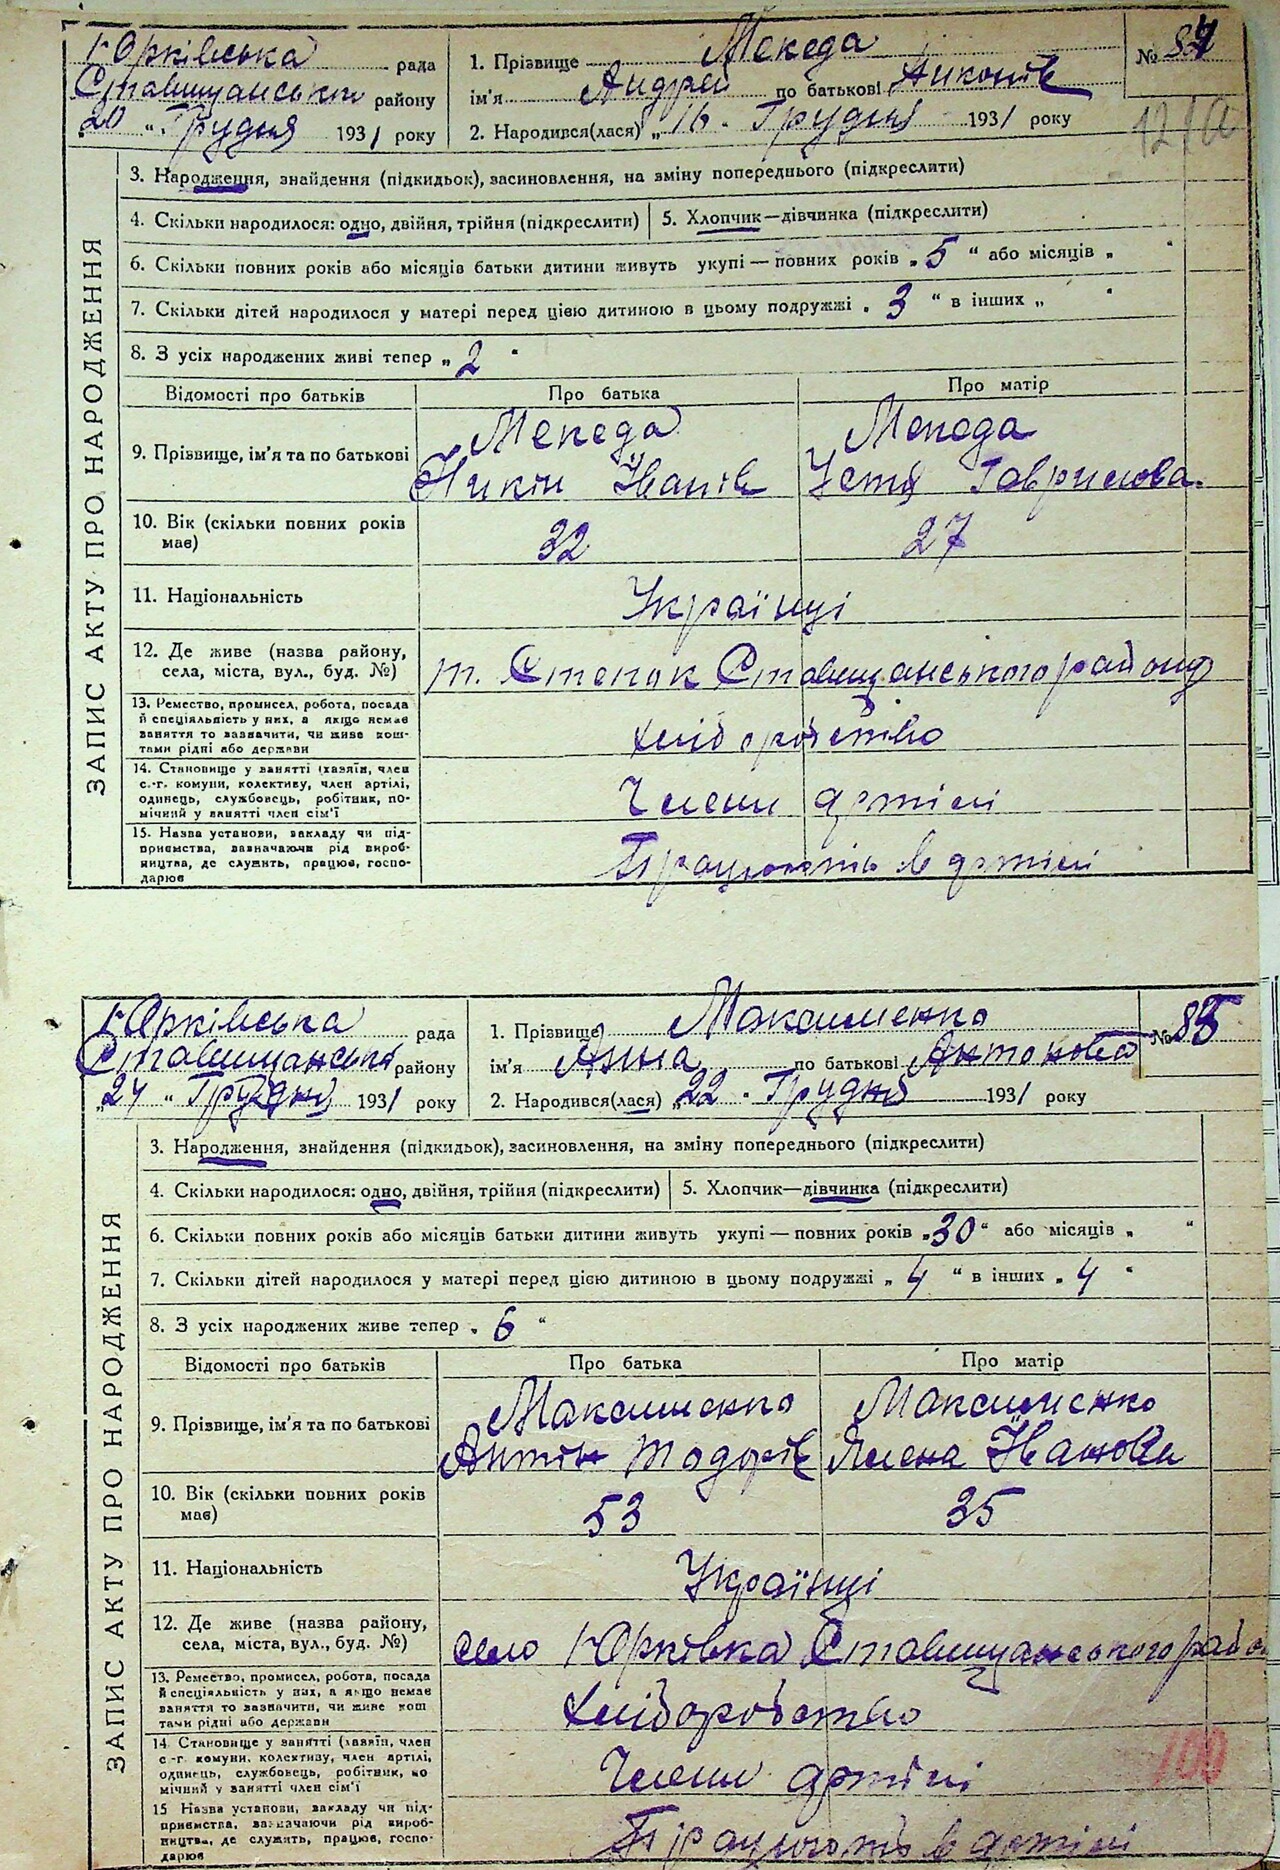 Юрківська рада
Ставищанськ району
20 „ Грудня 1931 року
1. Прізвище Мекеда
ім'я Андрей по батькові Никонів
2. Народився(лася) „16. Грудня 1931 року
№ 84
ЗАПИС АКТУ ПРО НАРОДЖЕННЯ
3. Народження, знайдення (підкидьок), засиновлення, на зміну попереднього (підкреслити)
4. Скільки народилося: одно, двійня, трійня (підкреслити) 5. Хлопчик—дівчинка (підкреслити)
6. Скільки повних років або місяців батьки дитини живуть укупі — повних років „5“ або місяців „ “
7. Скільки дітей народилося у матері перед цією дитиною в цьому подружжі „3“ в інших „ “
8. З усіх народжених живі тепер „2“
Відомості про батьків Про батька Про матір
9. Прізвище, ім'я та по батькові
Мекеда Мекеда
Никін Іванів Устя Гаврилова.
10. Вік (скільки повних років має) 32 27
11. Національність Українці
12. Де живе (назва району, села, міста, вул., буд. №) Степок Ставищанського району
13. Ремество, промисел, робота, посада
й спеціяльність у них, а якщо немає
заняття то зазначити, чи живе кош-
тами рідні або держави
Хліборобство
14. Становище у занятті (хазяїн, член
с.-г. комуни, колективу, член артілі,
одинець, службовець, робітник, по-
мічний у занятті член сім'ї
Члени артілі
15. Назва установи, закладу чи під-
приємства, зазначаючи рід вироб-
ництва, де служить, працює, госпо-
дарює
Працюють в артілі
Юрківська рада
Ставищанськ району
„24 “ Грудня 1931 року
1. Прізвище Максименко
ім'я Анна по батькові Антонова
2. Народився(лася) „22. Грудня 1931 року
№ 85
ЗАПИС АКТУ ПРО НАРОДЖЕННЯ
3. Народження, знайдення (підкидьок), засиновлення, на зміну попереднього (підкреслити)
4. Скільки народилося: одно, двійня, трійня (підкреслити) 5. Хлопчик—дівчинка (підкреслити)
6. Скільки повних років або місяців батьки дитини живуть укупі — повних років „30“ або місяців „ “
7. Скільки дітей народилося у матері перед цією дитиною в цьому подружжі „ 4 “ в інших „ 4 “
8. З усіх народжених живе тепер „ 6 “
Відомості про батьків Про батька Про матір
9. Прізвище, ім'я та по батькові
Максименко Максименко
Антін Тодорів Ялена Іванова
10. Вік (скільки повних років має) 53 35
11. Національність Українці
12. Де живе (назва району, села, міста, вул., буд. №) село Юрківка Ставищанського райо
13. Ремество, промисел, робота, посада
й спеціяльність у них, а якщо немає
заняття то зазначити, чи живе кош
тами рідні або держави
Хліборобство
14. Становище у занятті (хазяїн, член
с-г. комуни, колективу, член артілі,
одинець, службовець, робітник, по
мічний у занятті член сім'ї
Члени артілі
15 Назва установи, закладу чи під-
приємства, зазначаючи рід вироб-
ництва, де служить, працює, госпо-
дарює
Працюють в артілі
100